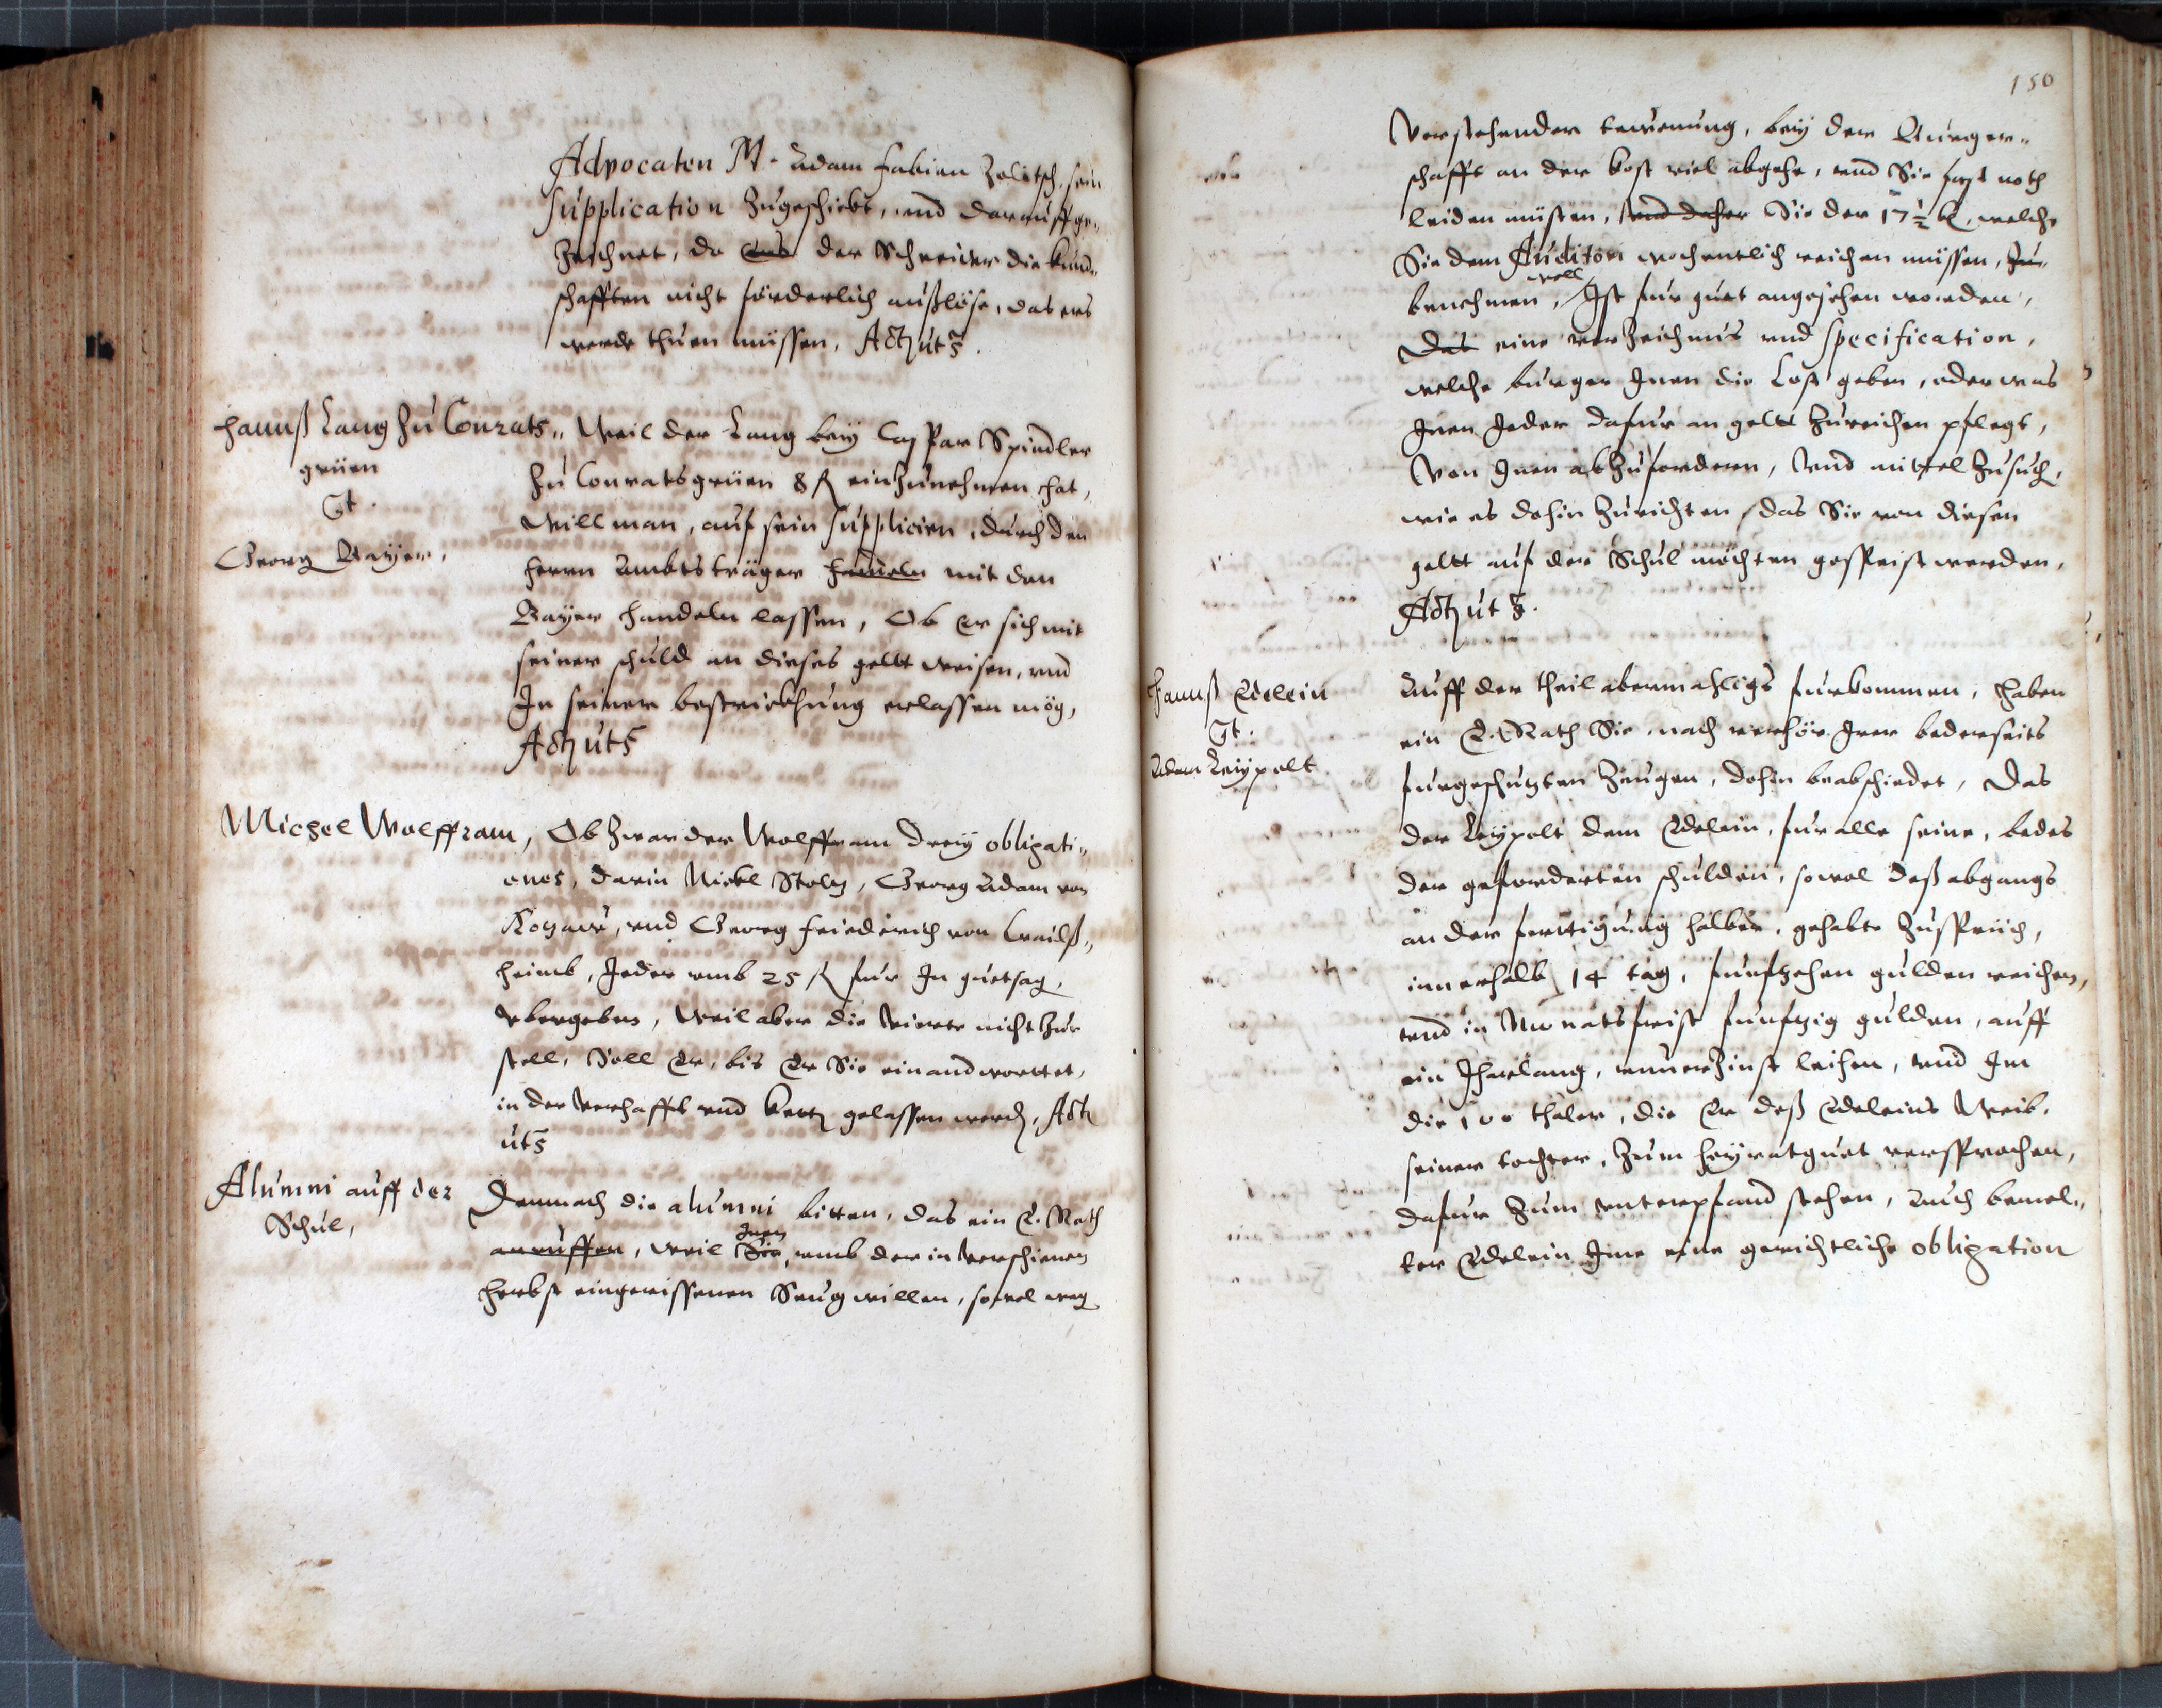 Advocaten M. Adam Fabian Zelitsch, sein
supplication zugeschickt, und darauff ge„
zeichnet, do der Schneider die kund„
schafften nicht förderlich außlöse, das ers
werde thuen müssen, Actu ut s.
Hannß Lang zu Conrats„
grüen
Ct.
Georg Bayer,
Weil der Lang bey Caspar Spindler
zu Conratsgrüen 8 fl einzunehmen hat,
will man, auf sein suppliciern, durch den
herrn Ambtsträger mit den
Bayer handeln lassen, Ob Er sich mit
seiner schuld an dieses gellt weisen, und
In seiner bestrickhung erlassen mög,
Actu ut s
Michel Wolffram,
Ob zwar der Wolffram drey obligati„
ones, darin Nickl Stoltz, Georg Adam von
Kotzaw, und Georg Friederich von Crailß„
heimb, Jeder umb 25 fl fur In guetsag,
vbergeben, Weil aber die nicht zur
stell, Soll Er, bis Er Sie einandwortet,
in der verhafft und gelassen werd, Actu
ut s
Alumni auff der
Schul,
Demnach die alumni bitten, das ein E. Rath
anruffen, weil Sie Inen, umb der in verschienen
herbst eingerissenen Seuch willen, sowol weg
150
Vorstehender tewerung, bey der Burger„
schafft an der kost viel abgehe, und Sie fast noth
leiden müsten, und daher Sie der 17½ welche
Sie dem Auditori wochentlich reichen müssen, zu„
benehmen, woll Ist fur guet angesehen worden,
Das eine verzeichnus und specification,
welche burger Inen die Kost geben, oder was
Inen Jeder dafur an gellt zureichen pflegt,
Von Inen abzufordern, Vnd mittel zusuch,
wie es dohin zurichten, das Sie von diesen
gellt auf der Schul möchten gespeist werden,
Actu ut s.
Hannß Edelein
Ct.
Adam Leypolt
Auff der theil abermahligs furkommen, haben
ein E. Rath Sie, nach verhör Irer bederseits
furgeschutzten Zeugen, dohin beabschiedet, Das
der Leypolt dem Edelein, fur alle seine, bedes
der geforderten schulden, sowol deß abgangs
an der fertigung halber, gehabte Zusprüch,
innerhalb 14 tag, funftzehen gulden reichen,
vnd in Monatsfrist funftzig gulden, auff
ein Iharlang, vnverzinst leihen, vnd Im
die 100 thaler, die Er deß Edeleins Weib,
seiner tochter, zum heyratguet versprochen,
dafur zum vnterpfand stehen, Auch bemel„
ter Edelein Ime eine gerichtliche obligation